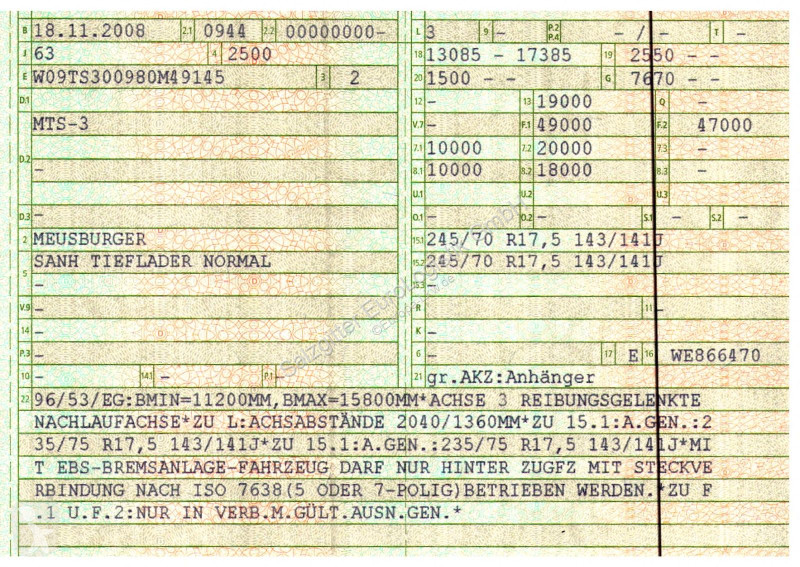 B 18.11.2008 2.1 0944 2.2 00000000-
J 63 4 2500
E W09TS300980M49145 3 2
D.1
MTS-3
D.2
-
D.3 -
2 MEUSBURGER
SANH TIEFLADER NORMAL
5 -
V.9 -
14 -
P.3 -
10 - 14.1 - P.1 -
L 3 9 - P.2 P.4 - / - T -
18 13085 - 17385 19 2550 - -
20 1500 - - G 7670 - -
12 - 13 19000 Q -
V.7 - F.1 49000 F.2 47000
7.1 10000 7.2 20000 7.3 -
8.1 10000 8.2 18000 8.3 -
U.1 U.2 U.3
O.1 - O.2 - S.1 - S.2 -
15.1 245/70 R17,5 143/141J
15.2 245/70 R17,5 143/141J
15.3 -
R 11 -
K -
6 - 17 E 16 WE866470
21 gr.AKZ:Anhänger
22 96/53/EG:BMIN=11200MM,BMAX=15800MM*ACHSE 3 REIBUNGSGELENKTE
NACHLAUFACHSE*ZU L:ACHSABSTÄNDE 2040/1360MM*ZU 15.1:A.GEN.:2
35/75 R17,5 143/141J*ZU 15.1:A.GEN.:235/75 R17,5 143/141J*MI
T EBS-BREMSANLAGE-FAHRZEUG DARF NUR HINTER ZUGFZ MIT STECKVE
RBINDUNG NACH ISO 7638(5 ODER 7-POLIG)BETRIEBEN WERDEN.*ZU F
.1 U.F.2:NUR IN VERB.M.GÜLT.AUSN.GEN.*